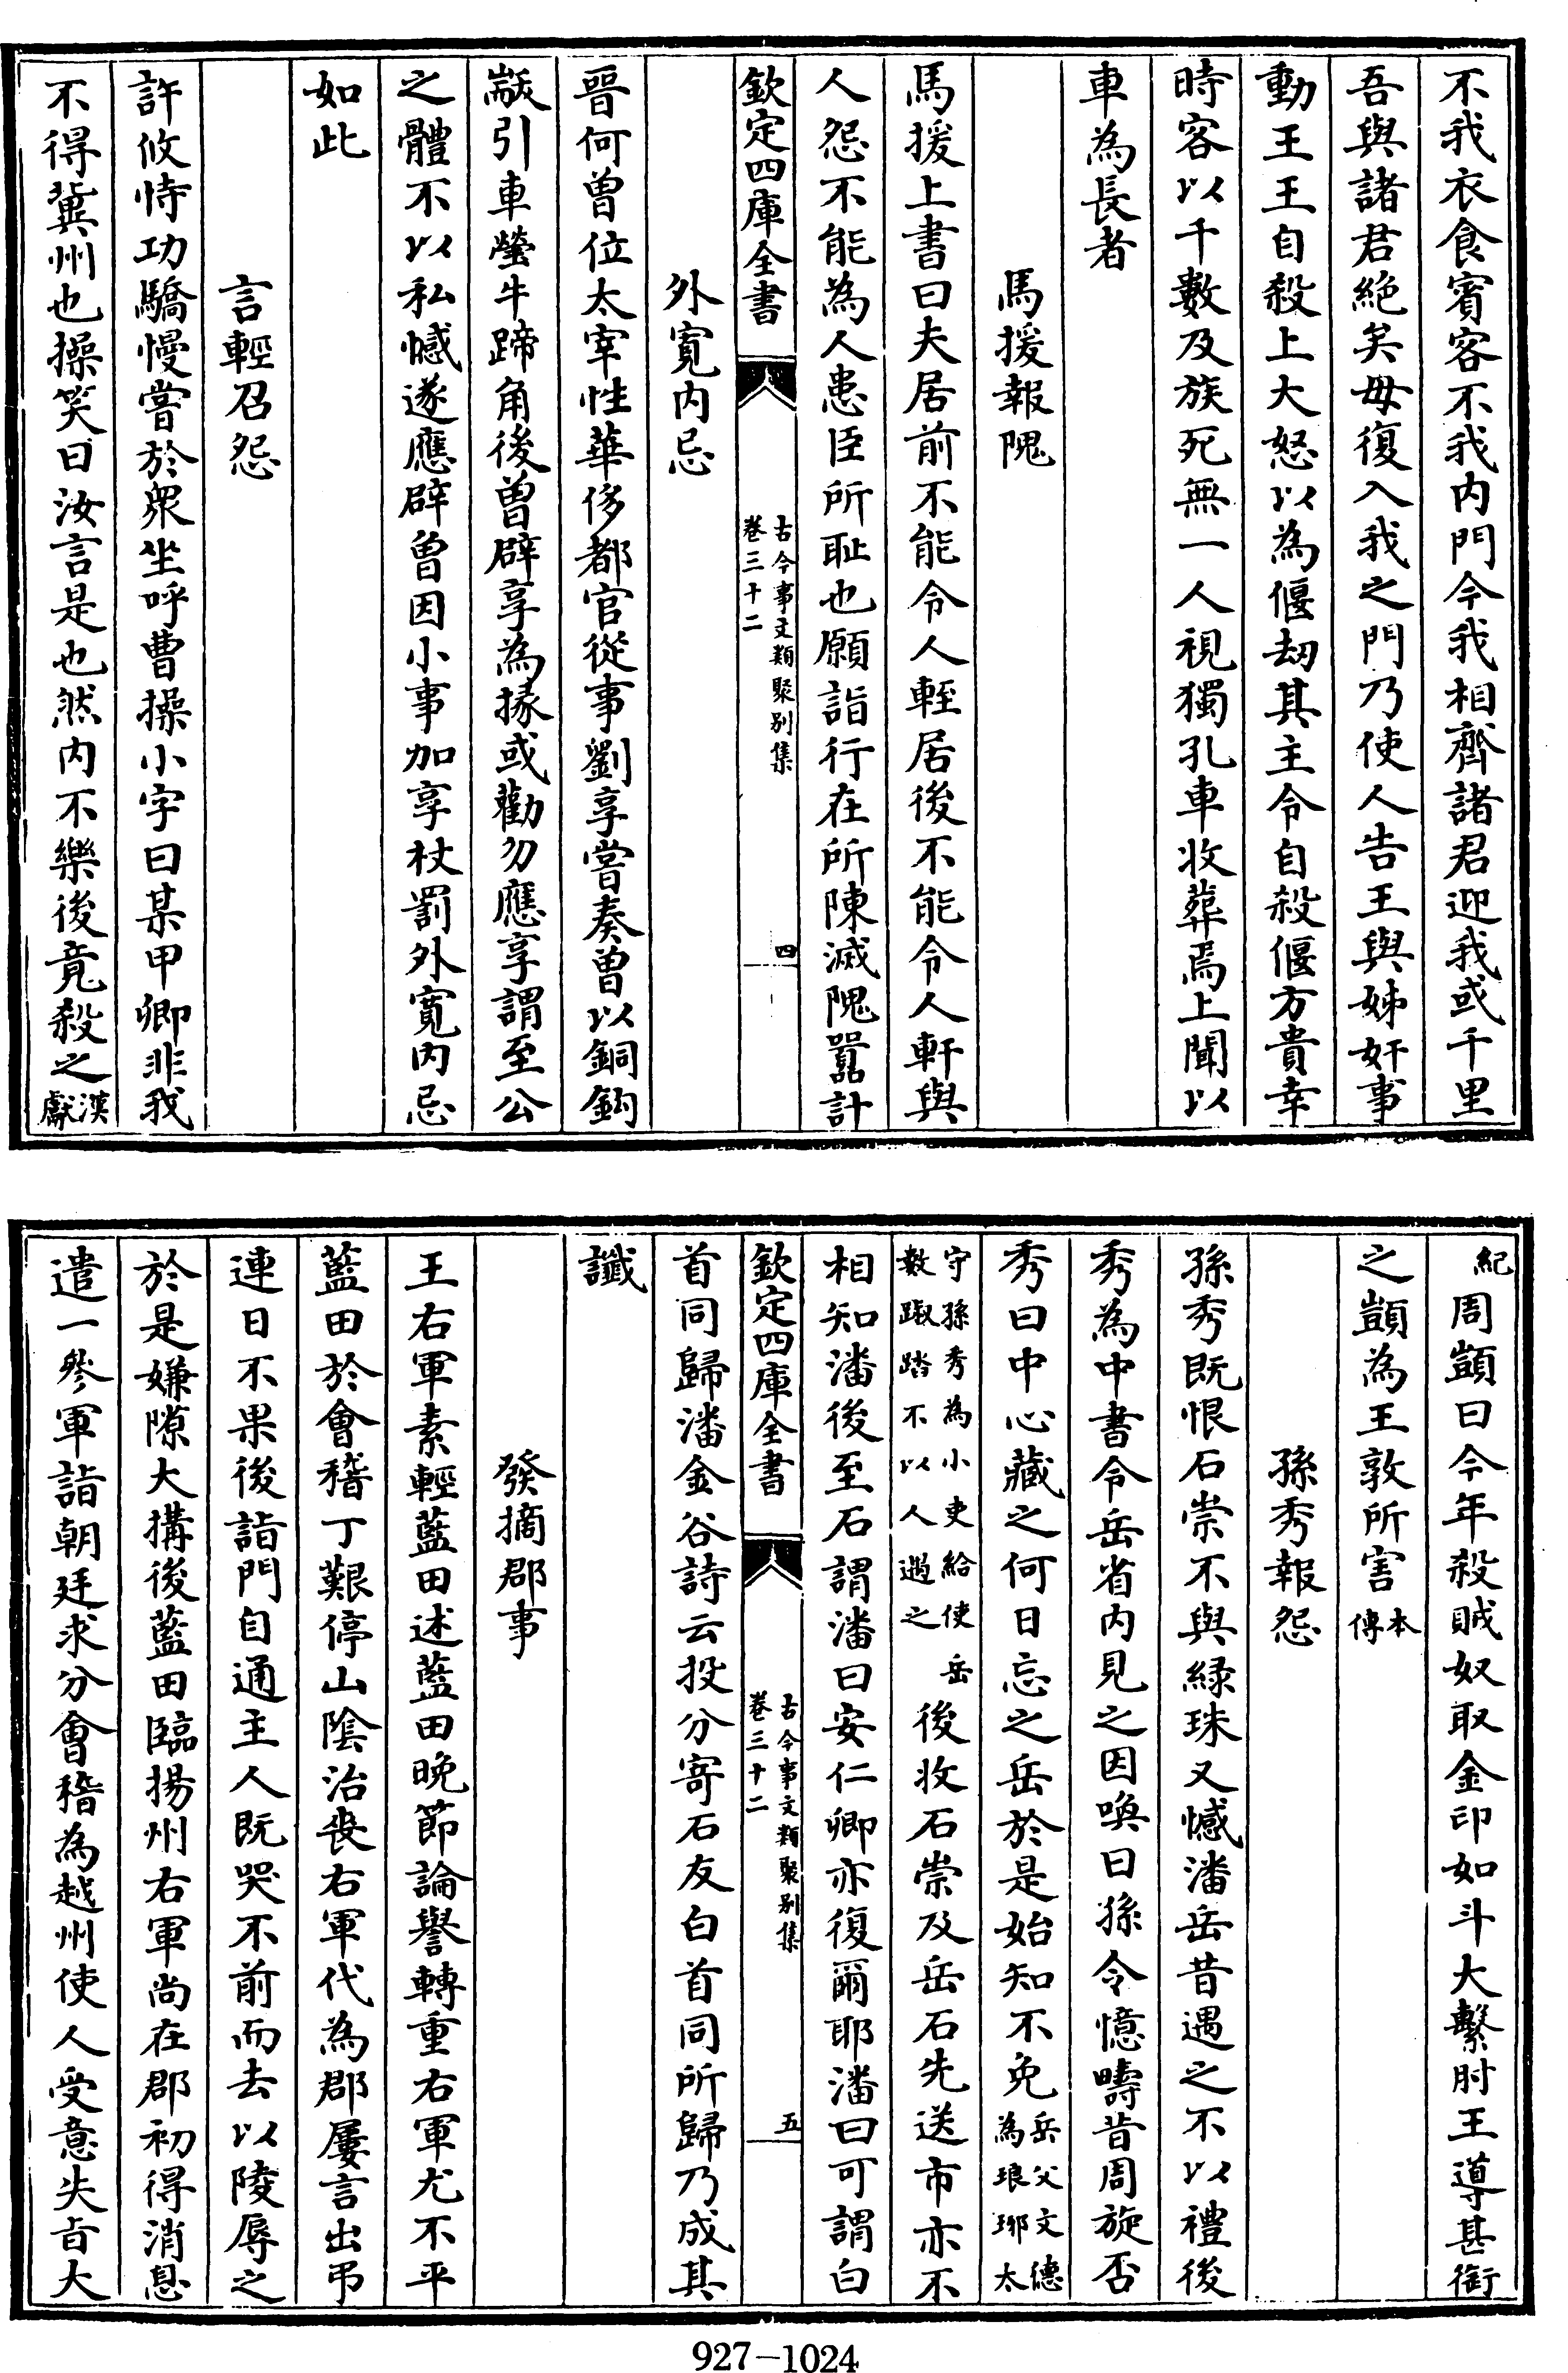 不我衣食賓客不我内門今我相齊諸君迎我或千里
吾與諸君絶矣毋復入我之門乃使人告王與姊奸事
動王王自殺上大怒以為偃刼其主令自殺偃方貴幸
時客以千數及族死無一人視獨孔車收葬焉上聞以
車為長者
馬援報隗
馬援上書曰夫居前不能令人輊居後不能令人軒與
人怨不能為人患臣所耻也願詣行在所陳滅隗囂計
欽定四庫全書
古今事文類聚别集
卷三十二
四
外寛内忌
晉何曾位太宰性華侈都官從事劉享嘗奏曾以銅鈎
黻引車瑩牛蹄角後曾辟享為掾或勸勿應享謂至公
之體不以私憾遂應辟曾因小事加享杖罰外寛内忌
如此
言輕召怨
許攸恃功驕慢嘗於衆坐呼曹操小字曰某甲卿非我
不得冀州也操笑曰汝言是也然内不樂後竟殺之漢
獻
紀周顗曰今年殺賊奴取金印如斗大繫肘王導甚銜
之顗為王敦所害本
傳
孫秀報怨
孫秀既恨石崇不與緑珠又憾潘岳昔遇之不以禮後
秀為中書令岳省内見之因喚曰孫令憶疇昔周旋否
秀曰中心藏之何日忘之岳於是始知不免岳父文德
為琅琊太
守孫秀為小吏給使岳
數蹴踏不以人遇之
後收石崇及岳石先送市亦不
相知潘後至石謂潘曰安仁卿亦復爾耶潘曰可謂白
欽定四庫全書
古今事文類聚别集
卷三十二
五
首同歸潘金谷詩云投分寄石友白首同所歸乃成其
讖
發摘郡事
王右軍素輕藍田述藍田晚節論譽轉重右軍尤不平
藍田於會稽丁艱停山陰治喪右軍代為郡屢言出弔
連日不果後詣門自通主人既哭不前而去以陵辱之
於是嫌隙大搆後藍田臨揚州右軍尚在郡初得消息
遣一參軍詣朝廷求分會稽為越州使人受意失旨大
927-1024